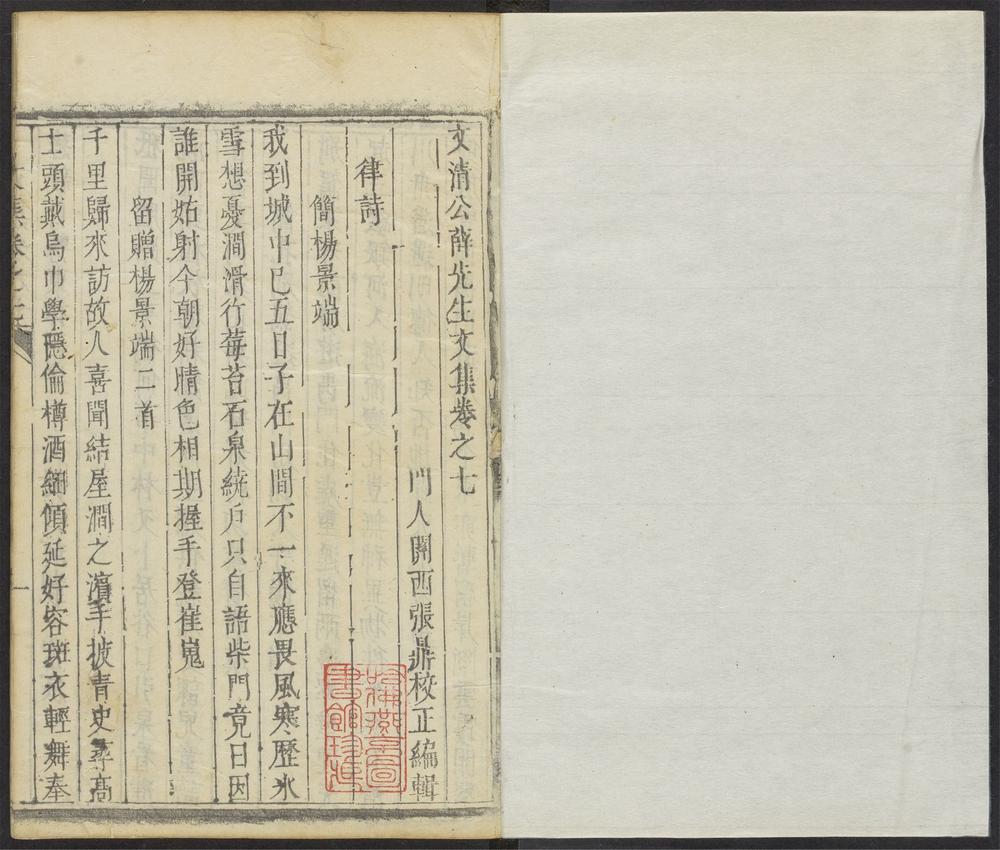 文清公薛先生文集卷之七
門人關西張鼎校正編輯
律詩
簡楊景端
我到城中已五日子在山間不一來應畏風寒歷氷
雪想憂澗滑行莓苔石泉繞戶只自語柴門竟日因
誰開姑射今朝好晴色相期握手登崔嵬
留贈楊景端二首
千里歸來訪故人喜聞結屋澗之濵手披青史尋高
士頭戴烏巾學隱倫樽酒細傾延好容斑衣輕舞奉
文集卷之七
一
哈佛燕京圖書館珍藏